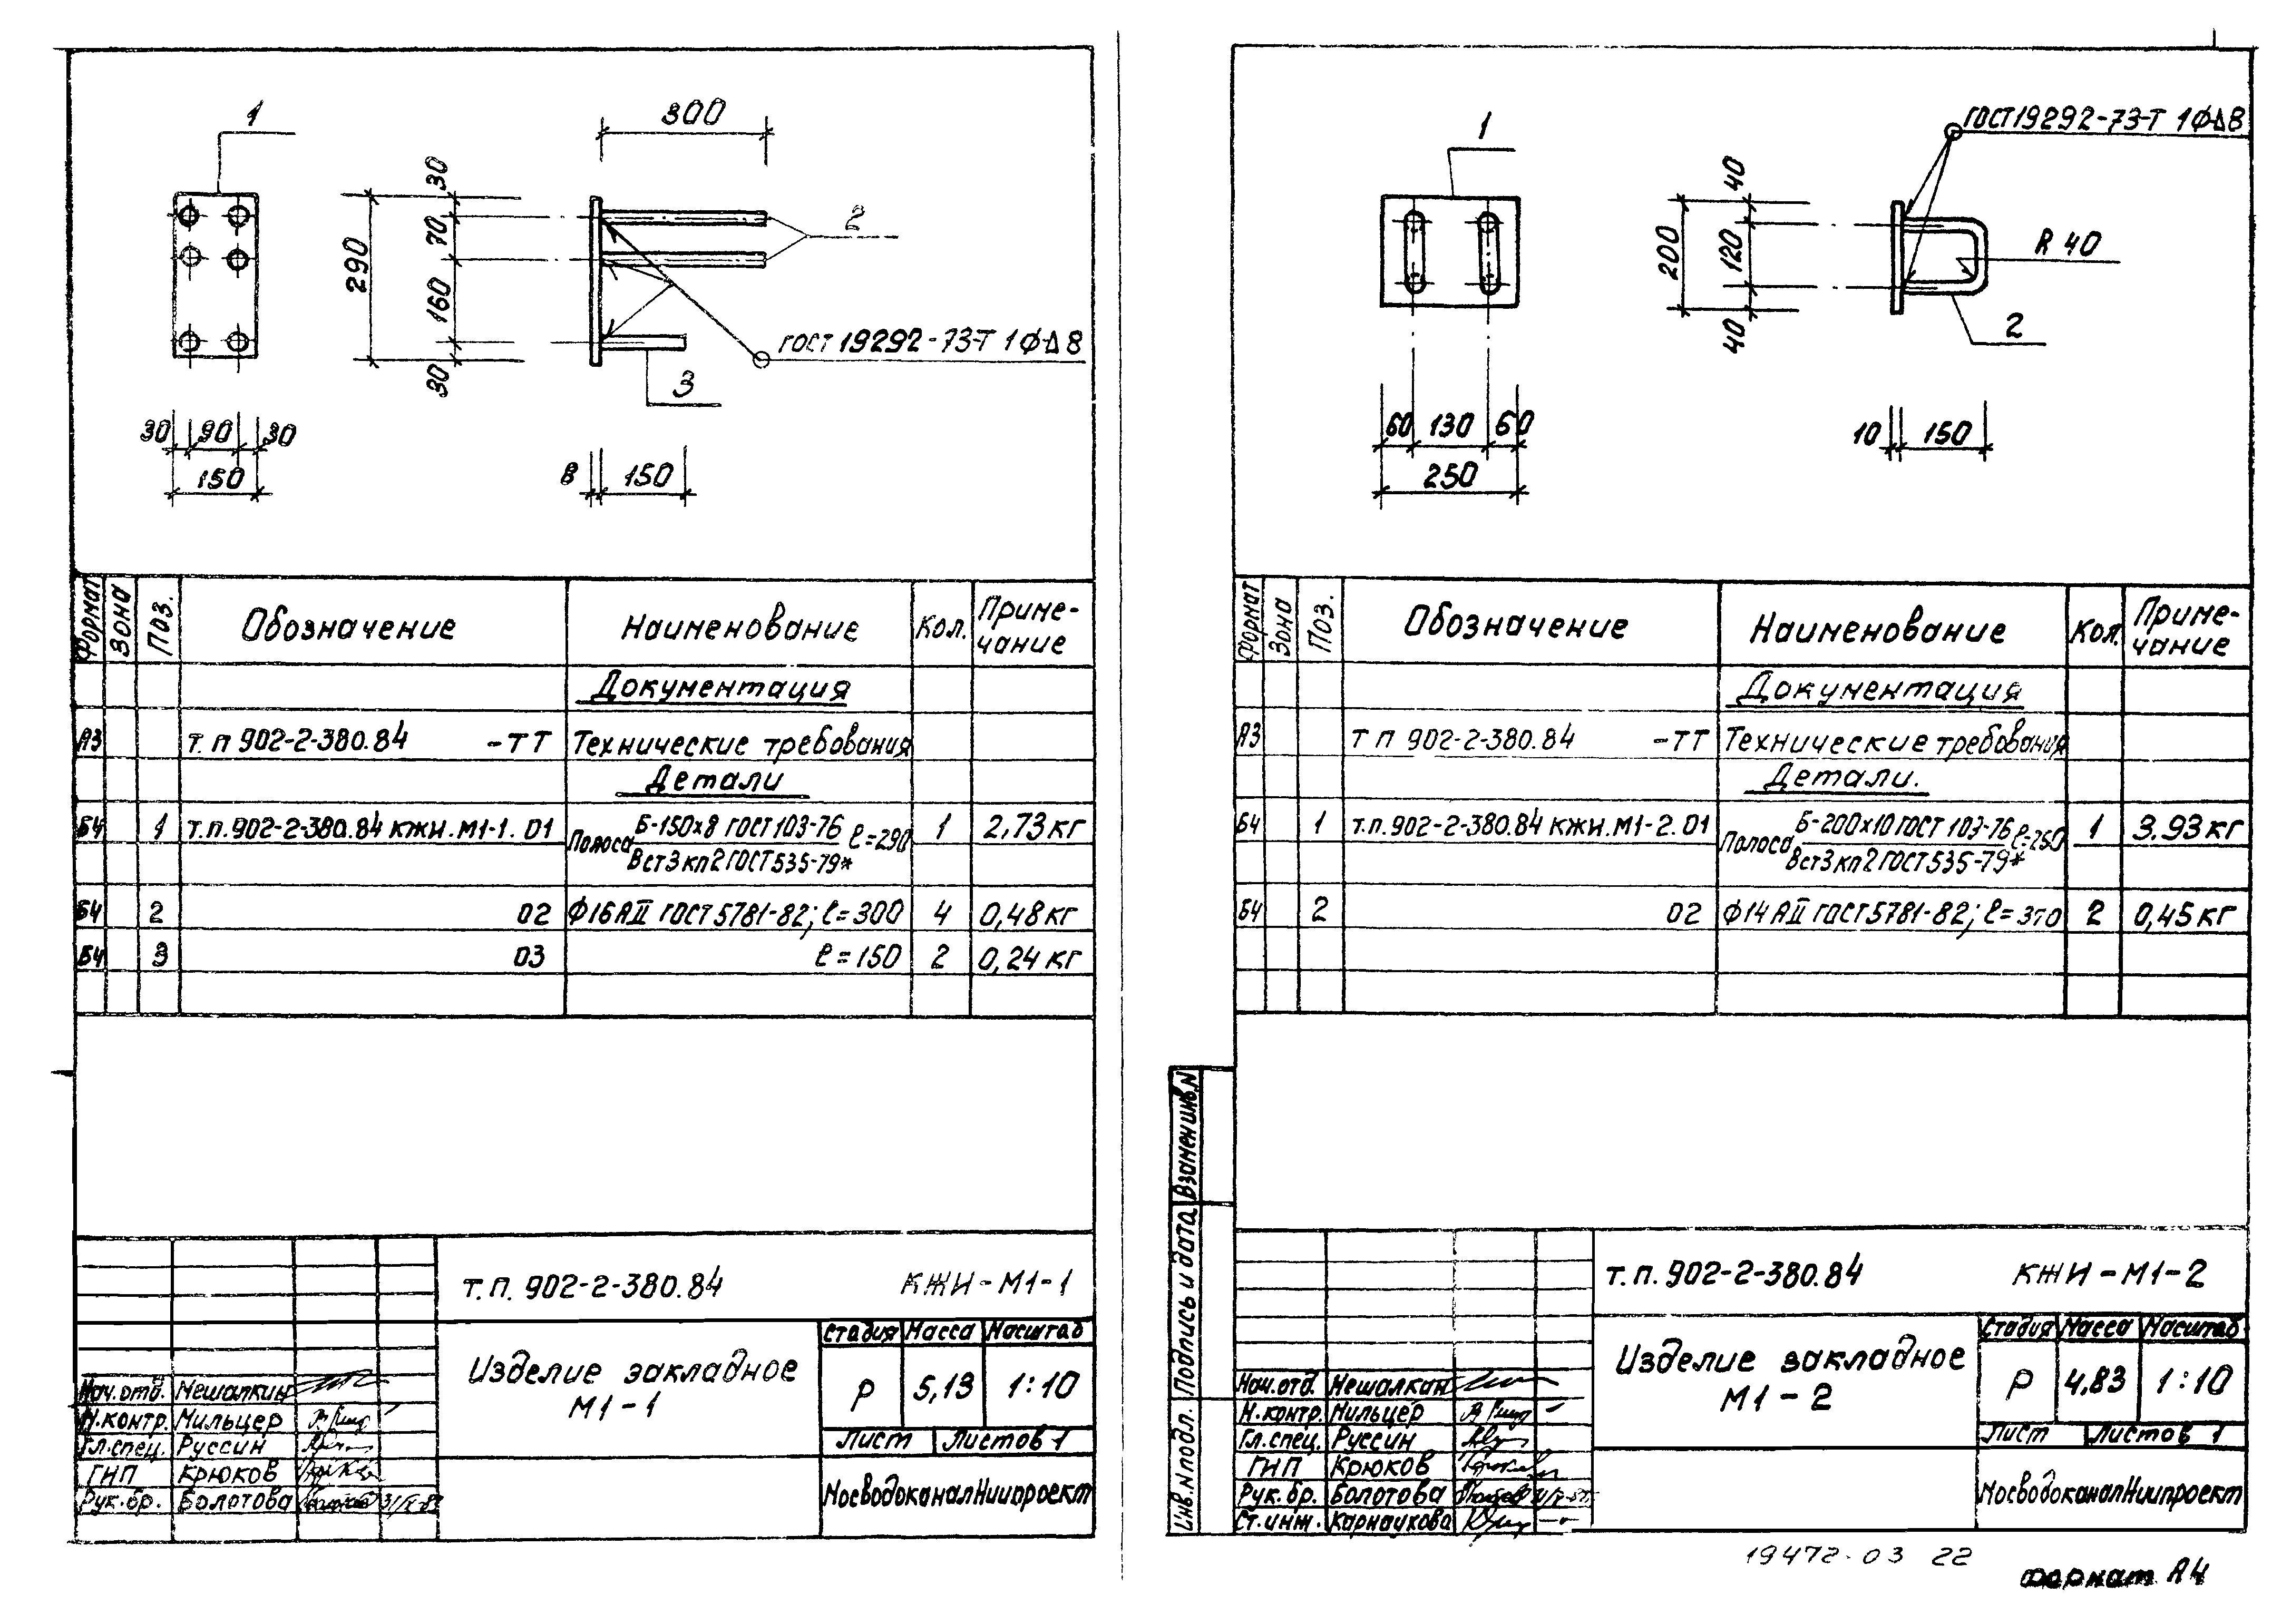 1
300
30
70
160
30
290
2
3
ГОСТ 19292-73-Т 1Ф-Δ8
30 90 30
150
8 150
Формат Зона Поз. Обозначение Наименование Кол. Приме-
чание
Документация
А3 Т. П 902-2-380.84 -ТТ Технические требования
Детали
Б4 1 Т.П.902-2-380.84 КЖИ.М1-1. 01 Полоса Б-150х8 ГОСТ 103-76 ℓ=290 1 2,73 кг
Вст3 кп2 ГОСТ 535-79*
Б4 2 02 Ф16АII ГОСТ 5781-82; ℓ=300 4 0,48 кг
Б4 3 03 ℓ=150 2 0,24 кг
Т. П. 902-2-380.84 КЖИ-М1-1
Изделие закладное
М1-1
Стадия Масса Масштаб
Р 5,13 1:10
Лист Листов 1
МосводоканалНиипроект
Нач.отд. Мешалкин
Н.контр. Мильцер
Гл.спец. Руссин
ГНП Крюков
Рук.бр. Болотова
1
ГОСТ 19292-73-Т 1Ф-Δ8
40
120
40
200
R 40
2
60 130 60
250
10 150
Формат Зона Поз. Обозначение Наименование Кол. Приме-
чание
Документация
А3 Т П 902-2-380.84 -ТТ Технические требования
Детали.
Б4 1 Т.П.902-2-380.84 КЖИ.М1-2.01 Полоса Б-200х10 ГОСТ 103-76 ℓ=250 1 3.93 кг
Вст3 кп2 ГОСТ 535-79*
Б4 2 02 Ф14 АII ГОСТ 5781-82; ℓ=370 2 0,45 кг
Взамен инв.N
Подпись и дата
Инв.N подл.
Т. П. 902-2-380.84 КЖИ-М1-2
Изделие закладное
М1-2
Стадия Масса Масштаб
Р 4,83 1:10
Лист Листов 1
МосводоканалНиипроект
Нач.отд. Мешалкин
Н.контр. Мильцер
Гл.спец. Руссин
ГНП Крюков
Рук.бр. Болотова
Ст.инж. Карначкова
19472-03 22
Формат А4